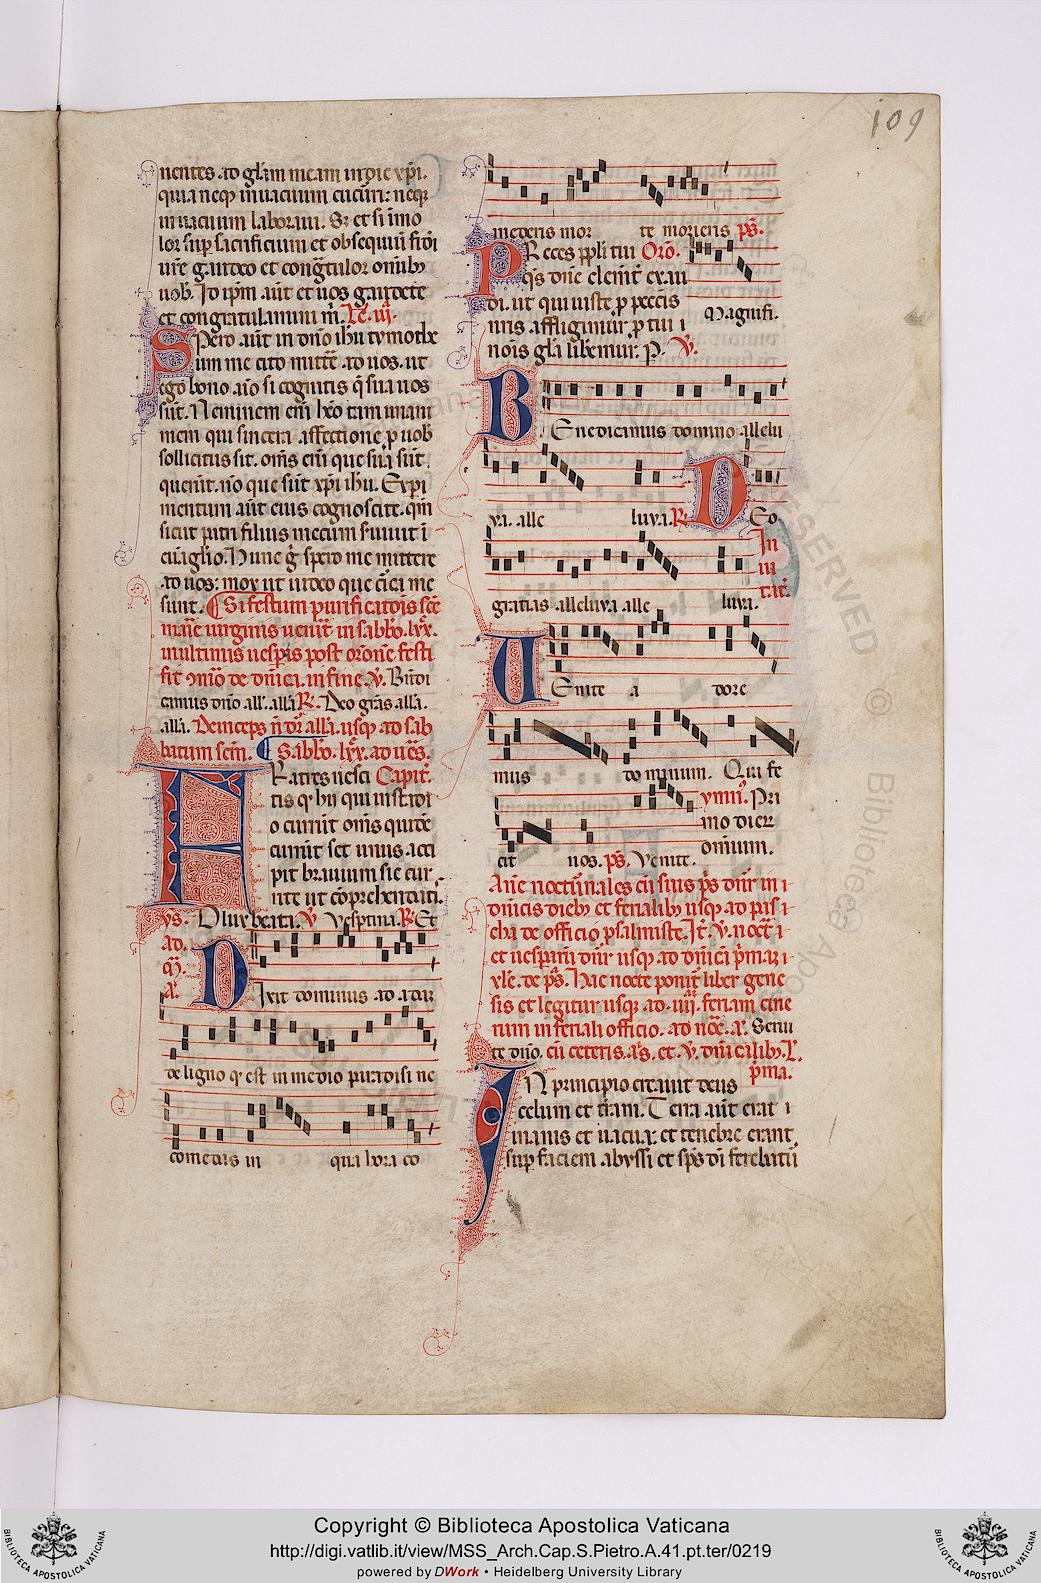 109
nentes. ad gl̄am meam in die xp̄i.
quia neq; in uacuum cucurri: neq;
in uacuum laboraui. Sz et si īmo
lor sup̄ sacrificium et obsequiū fidei
ur̄e gaudeo et congr̄tulor om̄ib;
uob̄. Id ip̄m aūt et uos gaudete
et congratulamini m̄. Lc̄. iij.
Spero aūt in dn̄o ih̄u tymothe
um me cito mittē ad uos. ut
ego bono aīo si cognitis q̄ sūt uos
sūt. Neminem eīn h̄eo tam unani
mem qui sincera affectione p uob̄
sollicitus sit. om̄s eīn que sua sūt
querūt. nō que sūt xp̄i ih̄u. Exp̄i
mentum aūt eius cognoscite. qm̄
sicut patri filius mecum seruiuit ī
euāglio. Hunc ḡ spero me mittere
ad uos: mox ut uideo que c̄ca me
sunt. Si festum purificatiōis scē
marīe uirginis uenīt in sabb̄o. lxx.
multimis uesp̄is post orōnē festi
fit 9mō de dnīca. in fine. v̄. Bn̄di
camus dn̄o all̄a. all̄a R̄. Deo gr̄as all̄a.
all̄a. Deinceps n̄ dr̄ all̄a. usq; ad sab
batum scm̄. Sabb̄o. lxx. ad ues̄.
Fratres nesci Capit̄.
tis q̄ hij qui in stadi
o currūt om̄s quidē
currūt set unus acci
pit brauium sic cur
rite ut cōprehendatis.
ys. O lux beata. v̄ Vesp̄tina. R̄. Et
ad.
m̄.
a.
Dixit dominus ad adaz
de ligno q̄ est in medio paradisi ne
comedas in qua hora co
mederis mor te morieris ps̄.
Preces ppl̄i tui Or̄o.
q̄s dn̄e clemēt exau
di. ut qui iuste p pecc̄is
Magnifi.
nr̄is affligimur. p tui
nōis gl̄a liberemur. P. v̄.
Benedicamus domino allelu
ya. alle luya. R̄ Deo
gratias alleluya alle luya.
In
ui
tat̄.
Uenite adore
mus dominum. Qui fe
cit nos. ps̄. Venite.
ymn̄. Pri
mo dier
omnium.
An̄e nocturnales cū suis ps̄ dnr̄ in
dnīcis dieb; et ferialib; usq; ad pas
cha de officio psalmiste. It̄. v̄. noct̄
et uesp̄tini dnr̄ usq; ad dnīcā p̄maz
xl̄e. de ps̄. Hac nocte ponit̄ liber gene
sis et legitur usq; ad. iiij. feriam cine
rum in feriali officio. ad noc̄. a. Serui
te dn̄o. cū ceteris. a's. et. v̄. dnīcalib;. L'.
p̄ma.
In principio creauit deus
celum et trām. Terra aūt erat
inanis et uacua: et tenebre erant
sup̄ faciem abyssi et sp̄s dī ferebatū
Copyright © Biblioteca Apostolica Vaticana
http://digi.vatlib.it/view/MSS_Arch.Cap.S.Pietro.A.41.pt.ter/0219
powered by DWork • Heidelberg University Library